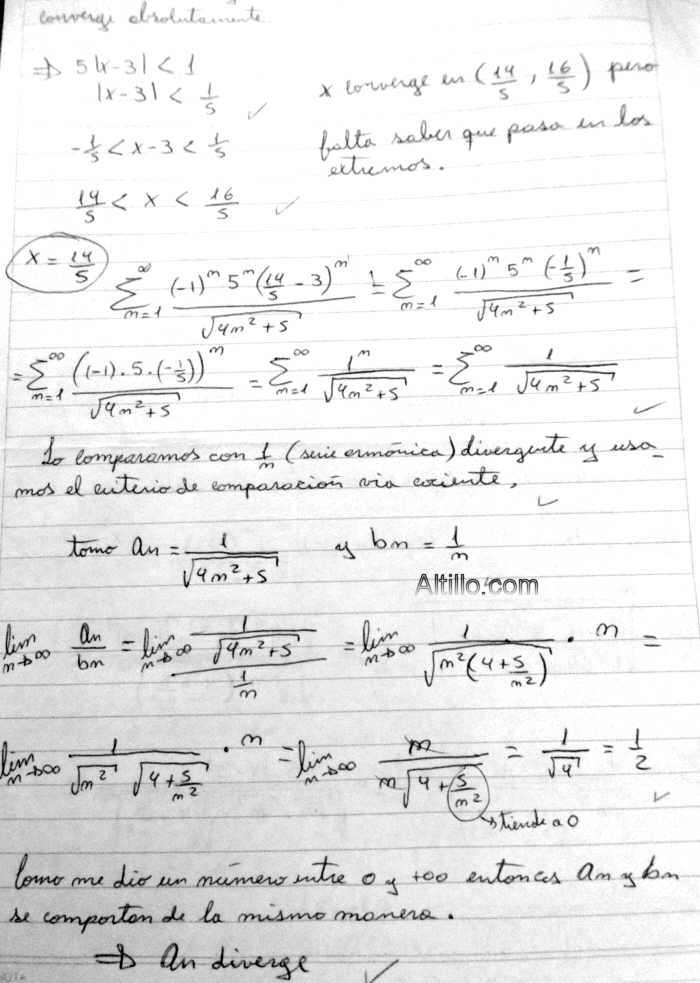 converge absolutamente
⇒ 5|x-3| < 1
|x-3| < 1/5 ✓
x converge en (14/5, 16/5) pero
-1/5 < x-3 < 1/5
falta saber que pasa en los
extremos.
14/5 < x < 16/5 ✓
x = 14/5
∑_{n=1}^{∞} (-1)^n 5^n (14/5 - 3)^n / √(4n²+5) = ∑_{n=1}^{∞} (-1)^n 5^n (-1/5)^n / √(4n²+5) =
= ∑_{n=1}^{∞} ((-1).5.(-1/5))^n / √(4n²+5) = ∑_{n=1}^{∞} 1^n / √(4n²+5) = ∑_{n=1}^{∞} 1 / √(4n²+5) ✓
Lo comparamos con 1/n (serie armónica) divergente y usa-
mos el criterio de comparación via cociente, ✓
tomo an = 1/√(4n²+5) y bn = 1/n
Altillo.com
lim_{n→∞} an/bn = lim_{n→∞} (1/√(4n²+5)) / (1/n) = lim_{n→∞} 1/√(n²(4+5/n²)) . n =
lim_{n→∞} 1/(√n² √(4+5/n²)) . n = lim_{n→∞} n/(n√(4+5/n²)) = 1/√4 = 1/2 ✓
→ tiende a 0
Como me dio un número entre 0 y +∞ entonces an y bn
se comportan de la misma manera.
⇒ an diverge ✓